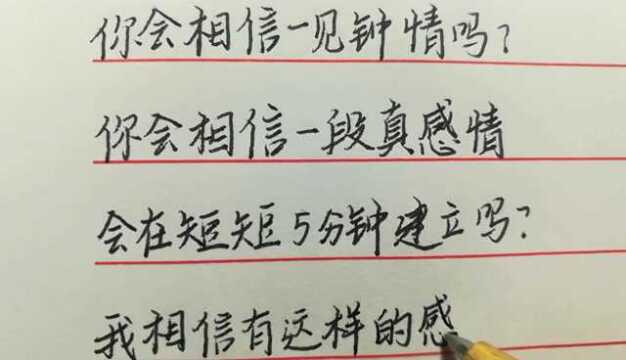 你会相信一见钟情吗?
你会相信一段真感情
会在短短5分钟建立吗?
我相信有这样的感